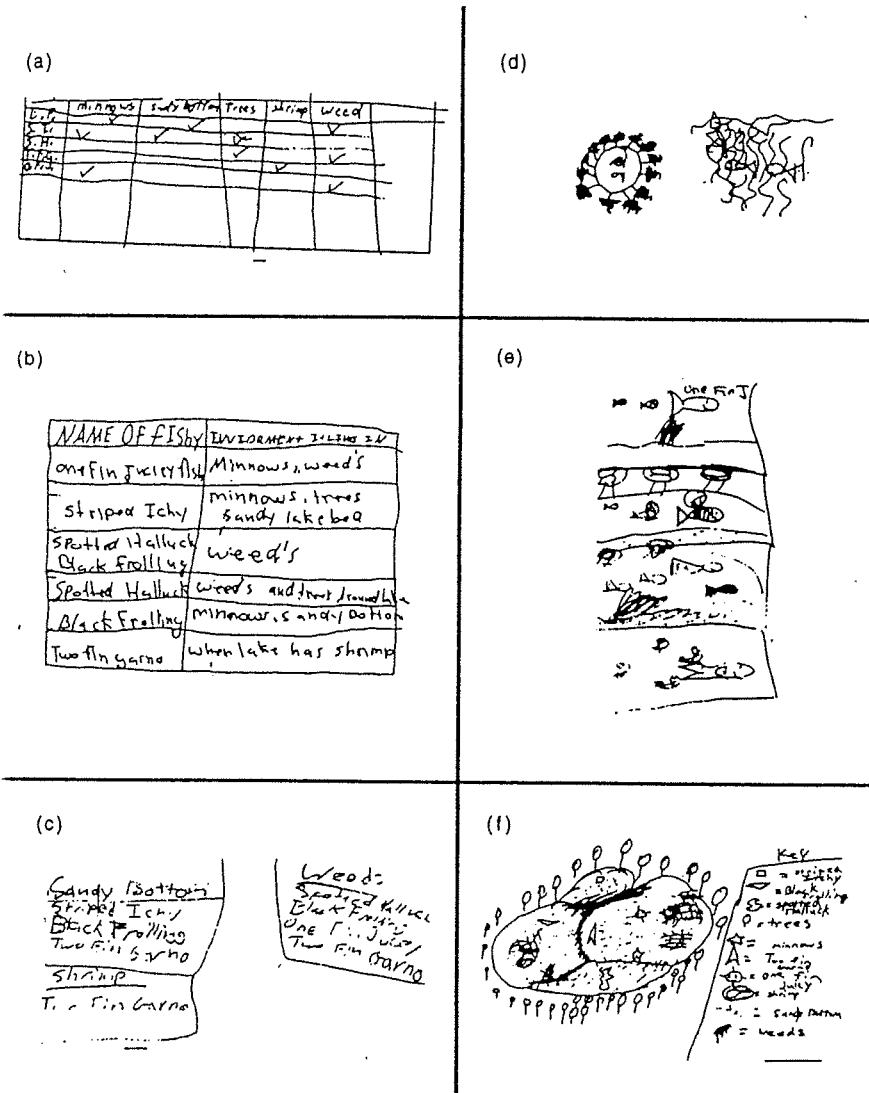 (a)
minnows sandy bottom Trees shrimp weed
(b)
NAME OF FISHY
one Fin Juicy fish Minnows, weed's
Striped Ichy minnows, trees
sandy lake bed
Spotted Halluck
Black Frolling weed's
Spotted Halluck weed's and trees around lake
Black Frolling minnows, sandy Bottom
Two fin garno when lake has shrimp
(c)
Sandy Bottom
Striped Ichy
Black Frolling
Two Fin Garno
Shrimp
Two Fin Garno
Weeds
Spotted Halluck
Black Frolling
One Fin Juicy
Two Fin Garno
(d)
(e)
One Fin J
(f)
Key
= Striped
Ichy
= Black
Frolling
= spotted
Halluck
= trees
= minnows
= Two fin
= one fin
Juicy
= shrimp
= Sand Bottom
= weeds